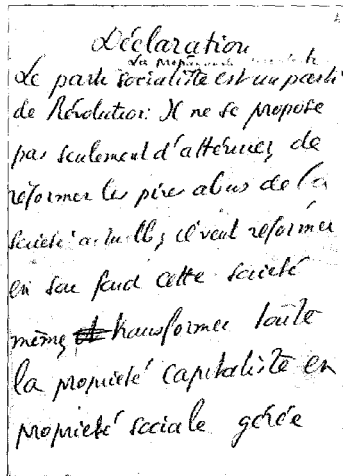 Déclaration
La
Le parti socialiste est un parti
de Révolution: Il ne se propose
pas seulement d'atténuer, de
réformer les pires abus de la
société actuelle, il veut réformer
en son fond cette société
même, et transformer toute
la propriété capitaliste en
propriété sociale gérée